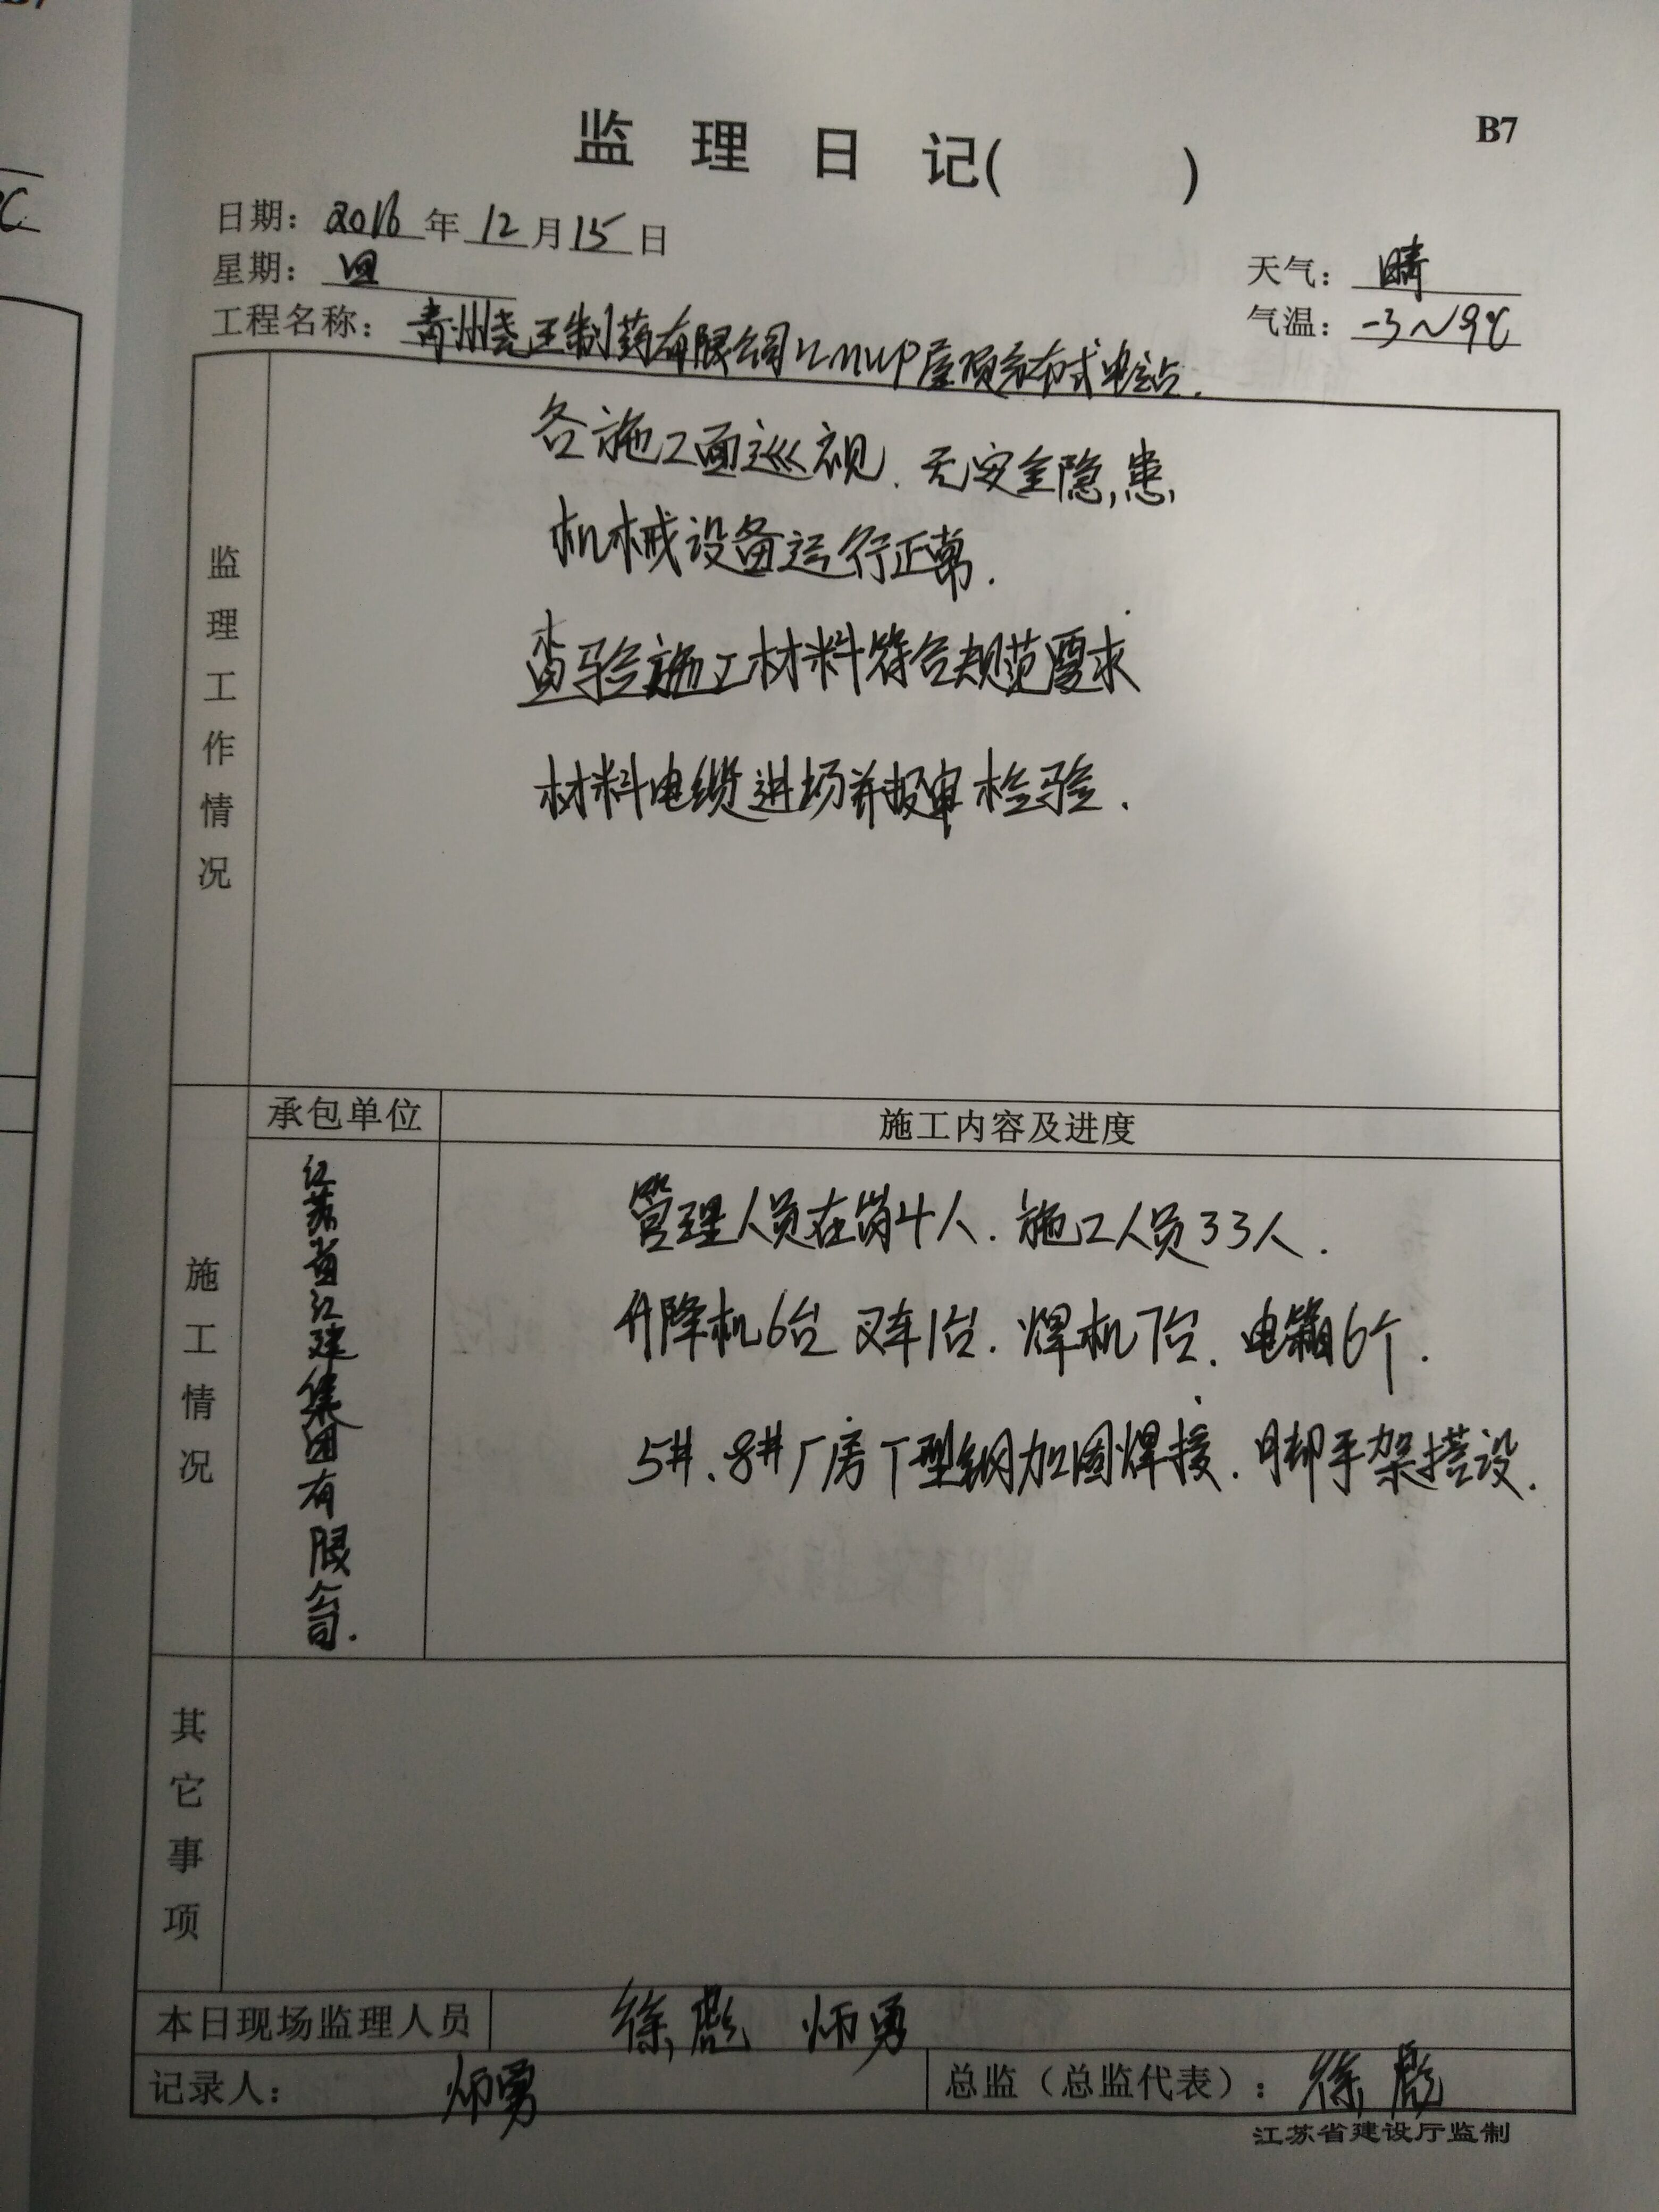 B7
监 理 日 记( )
日期：2016年12月15日
星期：四
天气：晴
气温：-3~9℃
工程名称：青州尧王制药有限公司 屋顶分布式电站.
监理工作情况
各施工面巡视.无安全隐患,
机械设备运行正常.
查验施工材料符合规范要求
材料电缆进场并报审检验.
施工情况
承包单位
施工内容及进度
江苏省江建集团有限公司.
管理人员在岗4人.施工人员33人.
升降机6台 叉车1台.焊机7台.电箱6个.
5#、8#厂房T型钢加固焊接.脚手架搭设.
其它事项
本日现场监理人员 徐彪 师勇
记录人：师勇
总监（总监代表）：徐彪
江苏省建设厅监制